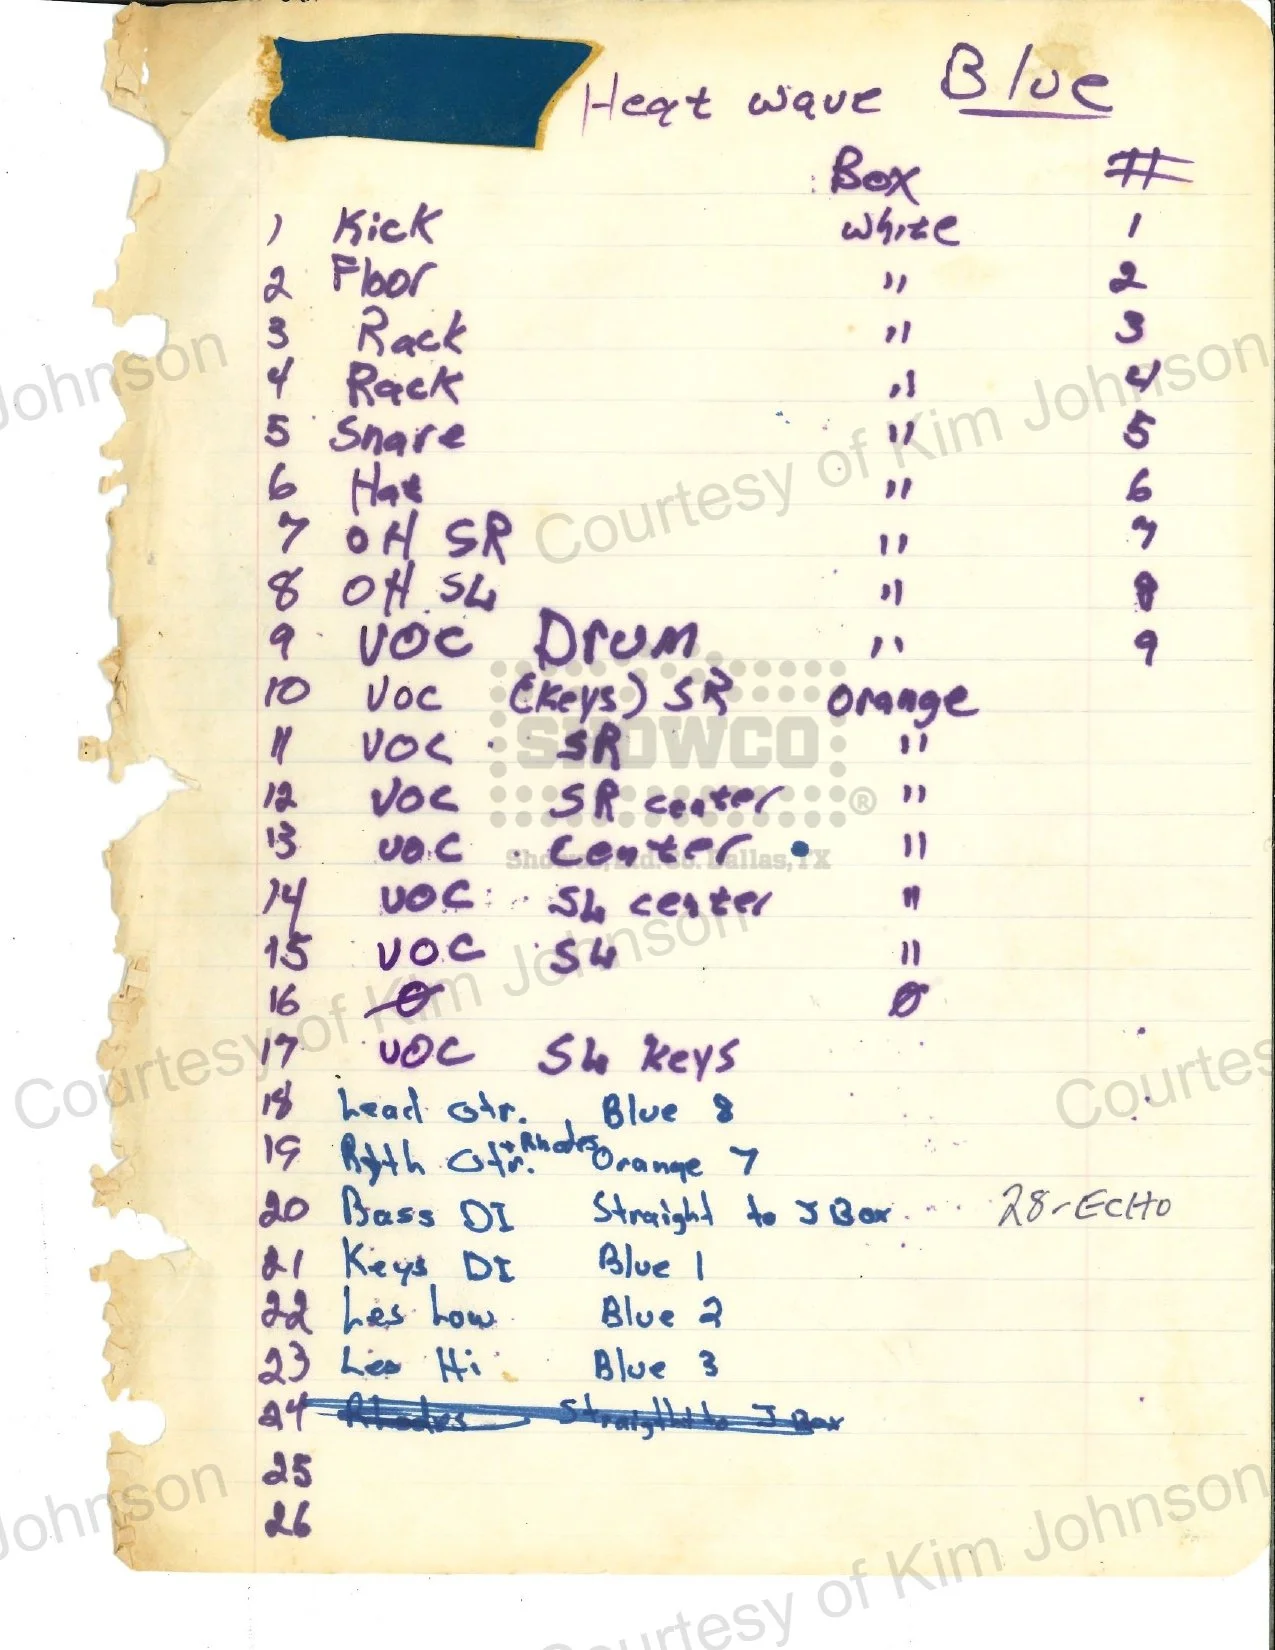 Heat wave Blue
Box #
1 Kick white 1
2 Floor " 2
3 Rack " 3
4 Rack " 4
5 Snare " 5
6 Hat " 6
7 OH SR " 7
8 OH SL " 8
9 VOC Drum " 9
10 VOC (Keys) SR Orange
11 VOC SR "
12 VOC SR center "
13 VOC center "
14 VOC SL center "
15 VOC SL "
16 0 0
17 VOC SL Keys
18 Lead Gtr. Blue 8
19 Ryth Gtr. + Rhodes Orange 7
20 Bass DI Straight to J Box 28-ECHO
21 Keys DI Blue 1
22 Les Low Blue 2
23 Les Hi Blue 3
24 Rhodes Straight to J Box
25
26
Johnson
Courtesy of Kim Johnson
SHOWCO ®
Showco, Ltd. Co. Dallas, TX
Courtesy of Kim Johnson
Courtes
Johnson
Courtesy of Kim Johnson